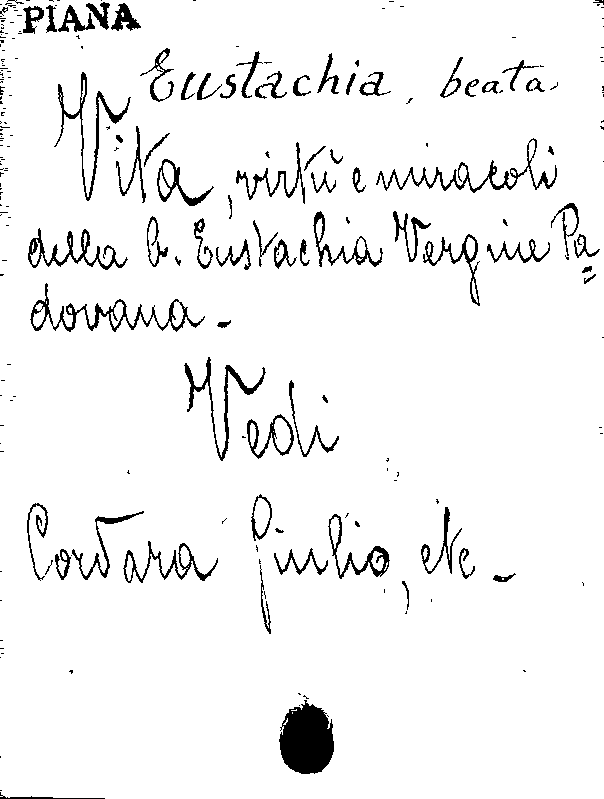 PIANA
Eustachia, beata.
Vita, virtù e miracoli
della b. Eustachia Vergine Pa=
dovana -
Vedi
Cordara Giulio, etc -